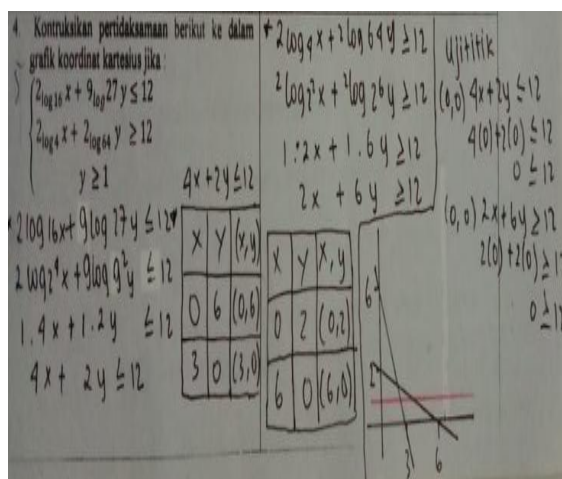 4. Kontruksikan pertidaksamaan berikut ke dalam
grafik koordinat kartesius jika :
2log16 x + 9log27 y ≤ 12
2log4 x + 2log64 y ≥ 12
y ≥ 1
2log16x + 9log27y ≤ 12
2log2⁴x + 9log9²y ≤ 12
1.4x + 1.2y ≤ 12
4x + 2y ≤ 12
4x + 2y ≤ 12
x y (x,y)
0 6 (0,6)
3 0 (3,0)
* 2log4x + ²log64y ≥ 12
²log2²x + ²log2⁶y ≥ 12
1.2x + 1.6y ≥ 12
2x + 6y ≥ 12
x y x,y
0 2 (0,2)
6 0 (6,0)
ujititik
(0,0) 4x+2y ≤ 12
4(0)+2(0) ≤ 12
0 ≤ 12
(0,0) 2x+6y ≥ 12
2(0)+2(0) ≥ 1
0 ≥ 1
6
2
3 6